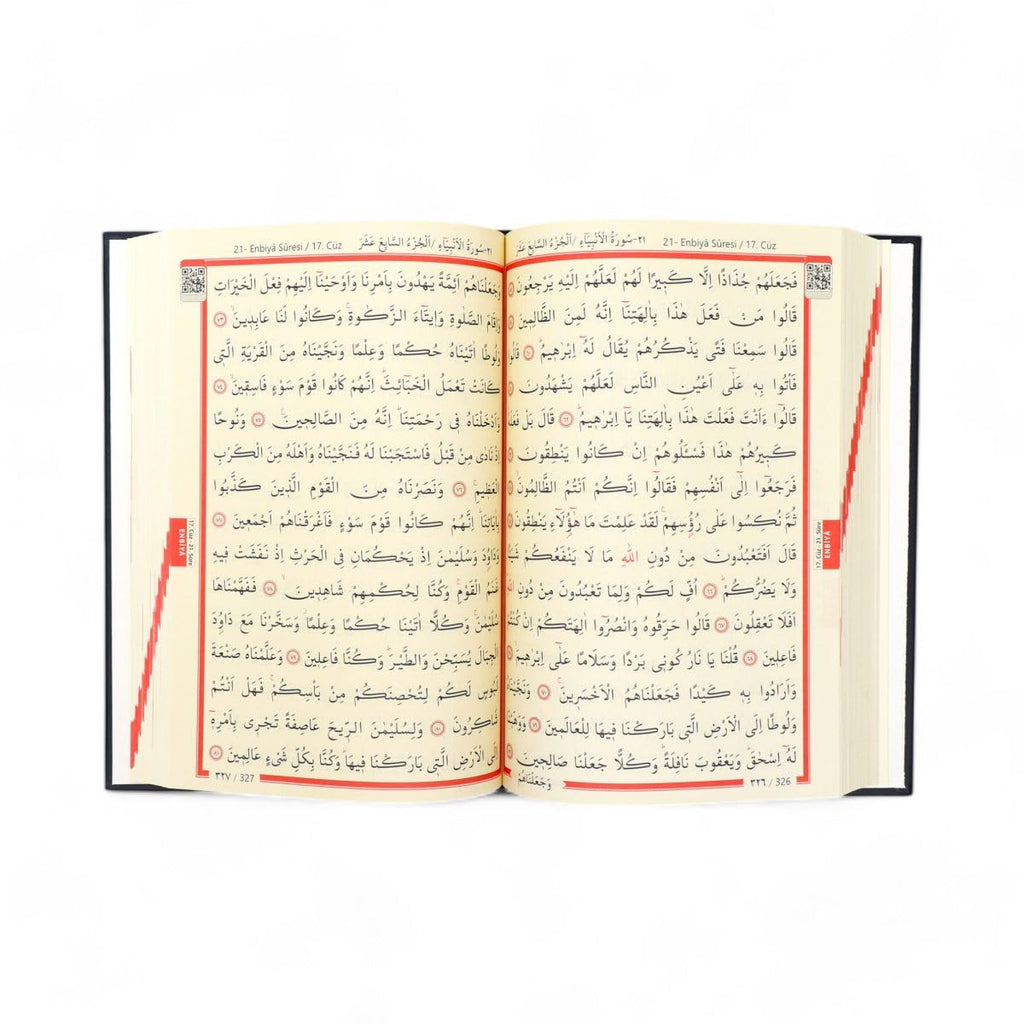 21- Enbiyâ Sûresi / 17. Cüz ٢١-سُورَةُ الْاَنْبِيَٓاءِ /اَلْجُزْءُ السَّابِعَ عَشَرَ
فَجَعَلَهُمْ جُذَاذًا اِلَّا كَبٖيرًا لَهُمْ لَعَلَّهُمْ اِلَيْهِ يَرْجِعُونَ
قَالُوا مَنْ فَعَلَ هٰذَا بِاٰلِهَتِنَٓا اِنَّهُ لَمِنَ الظَّالِمٖينَ
قَالُوا سَمِعْنَا فَتًى يَذْكُرُهُمْ يُقَالُ لَهُٓ اِبْرٰهٖيمُ قَالُوا
فَأْتُوا بِهٖ عَلٰٓى اَعْيُنِ النَّاسِ لَعَلَّهُمْ يَشْهَدُونَ
قَالُٓوا ءَاَنْتَ فَعَلْتَ هٰذَا بِاٰلِهَتِنَا يَٓا اِبْرٰهٖيمُ ٦٢ قَالَ بَلْ فَعَلَهُ
كَبٖيرُهُمْ هٰذَا فَسْـَٔلُوهُمْ اِنْ كَانُوا يَنْطِقُونَ
فَرَجَعُٓوا اِلٰٓى اَنْفُسِهِمْ فَقَالُٓوا اِنَّكُمْ اَنْتُمُ الظَّالِمُونَ
ثُمَّ نُكِسُوا عَلٰى رُؤُسِهِمْ لَقَدْ عَلِمْتَ مَا هٰٓؤُلَٓاءِ يَنْطِقُونَ
قَالَ اَفَتَعْبُدُونَ مِنْ دُونِ اللّٰهِ مَا لَا يَنْفَعُكُمْ شَيْـًٔا
وَلَا يَضُرُّكُمْ ٦٦ اُفٍّ لَكُمْ وَلِمَا تَعْبُدُونَ مِنْ دُونِ اللّٰهِ
اَفَلَا تَعْقِلُونَ ٦٧ قَالُوا حَرِّقُوهُ وَانْصُرُٓوا اٰلِهَتَكُمْ اِنْ كُنْتُمْ
فَاعِلٖينَ ٦٨ قُلْنَا يَا نَارُ كُونٖى بَرْدًا وَسَلَامًا عَلٰٓى اِبْرٰهٖيمَ
وَاَرَادُوا بِهٖ كَيْدًا فَجَعَلْنَاهُمُ الْاَخْسَرٖينَ ٧٠ وَنَجَّيْنَاهُ
وَلُوطًا اِلَى الْاَرْضِ الَّتٖى بَارَكْنَا فٖيهَا لِلْعَالَمٖينَ ٧١ وَوَهَبْنَا
لَهُٓ اِسْحٰقَ وَيَعْقُوبَ نَافِلَةً وَكُلًّا جَعَلْنَا صَالِحٖينَ
وَجَعَلْنَاهُمْ
٣٢٦ / 326
17. Cüz - 21. Sûre
ENBİYÂ
21- Enbiyâ Sûresi / 17. Cüz ٢١-سُورَةُ الْاَنْبِيَٓاءِ /اَلْجُزْءُ السَّابِعَ عَشَرَ
وَجَعَلْنَاهُمْ اَئِمَّةً يَهْدُونَ بِاَمْرِنَا وَاَوْحَيْنَٓا اِلَيْهِمْ فِعْلَ الْخَيْرَاتِ
وَاِقَامَ الصَّلٰوةِ وَاٖيتَٓاءَ الزَّكٰوةِ وَكَانُوا لَنَا عَابِدٖينَ ٧٣
وَلُوطًا اٰتَيْنَاهُ حُكْمًا وَعِلْمًا وَنَجَّيْنَاهُ مِنَ الْقَرْيَةِ الَّتٖى
كَانَتْ تَعْمَلُ الْخَبَٓائِثَ اِنَّهُمْ كَانُوا قَوْمَ سَوْءٍ فَاسِقٖينَ ٧٤
وَاَدْخَلْنَاهُ فٖى رَحْمَتِنَا اِنَّهُ مِنَ الصَّالِحٖينَ ٧٥ وَنُوحًا
اِذْ نَادٰى مِنْ قَبْلُ فَاسْتَجَبْنَا لَهُ فَنَجَّيْنَاهُ وَاَهْلَهُ مِنَ الْكَرْبِ
الْعَظٖيمِ ٧٦ وَنَصَرْنَاهُ مِنَ الْقَوْمِ الَّذٖينَ كَذَّبُوا
بِاٰيَاتِنَا اِنَّهُمْ كَانُوا قَوْمَ سَوْءٍ فَاَغْرَقْنَاهُمْ اَجْمَعٖينَ ٧٧
وَدَاوُدَ وَسُلَيْمٰنَ اِذْ يَحْكُمَانِ فِى الْحَرْثِ اِذْ نَفَشَتْ فٖيهِ
غَنَمُ الْقَوْمِ وَكُنَّا لِحُكْمِهِمْ شَاهِدٖينَ ٧٨ فَفَهَّمْنَاهَا
سُلَيْمٰنَ وَكُلًّا اٰتَيْنَا حُكْمًا وَعِلْمًا وَسَخَّرْنَا مَعَ دَاوُدَ
الْجِبَالَ يُسَبِّحْنَ وَالطَّيْرَ وَكُنَّا فَاعِلٖينَ ٧٩ وَعَلَّمْنَاهُ صَنْعَةَ
لَبُوسٍ لَكُمْ لِتُحْصِنَكُمْ مِنْ بَأْسِكُمْ فَهَلْ اَنْتُمْ
شَاكِرُونَ ٨٠ وَلِسُلَيْمٰنَ الرّٖيحَ عَاصِفَةً تَجْرٖى بِاَمْرِهٖٓ
اِلَى الْاَرْضِ الَّتٖى بَارَكْنَا فٖيهَا وَكُنَّا بِكُلِّ شَیْءٍ عَالِمٖينَ ٨١
٣٢٧ / 327
17. Cüz - 21. Sûre
ENBİYÂ